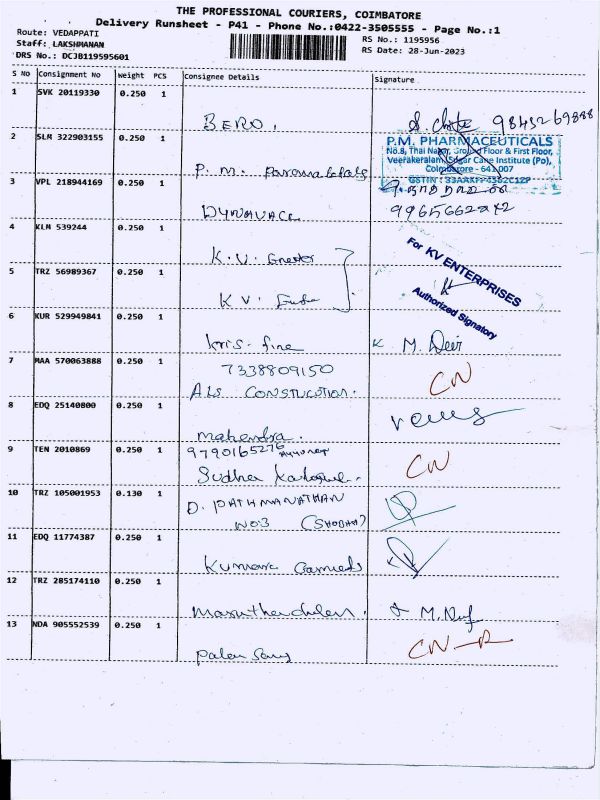 THE PROFESSIONAL COURIERS, COIMBATORE
Delivery Runsheet - P41 - Phone No.:0422-3505555 - Page No.:1
Route: VEDAPPATI
RS No.: 1195956
Staff: LAKSHMANAN
RS Date: 28-Jun-2023
DRS No.: DCJB119595601
S No Consignment No Weight PCS Consignee Details Signature
1 SVK 20119330 0.250 1
BERO. 9843269888
2 SLM 322903155 0.250 1
P.M. PHARMACEUTICALS
No.8, Thai Nagar, Ground Floor & First Floor,
Veerakeralam, Sugar Cane Institute (Po),
Coimbatore - 641 007
P. M.
GSTIN :
3 VPL 218944169 0.250 1
9965662242
4 KLM 539244 0.250 1
K.V.
For KV ENTERPRISES
5 TRZ 56989367 0.250 1
K V.
Authorized Signatory
6 KUR 529949841 0.250 1
Kris-fine K M. Devi
7 MAA 570063888 0.250 1
7338809150
ALS CN
8 EDQ 25140800 0.250 1
mahendra.
9 TEN 2010869 0.250 1
9790165276
Sudha CN
10 TRZ 105001953 0.130 1
D. PATHMANATHAN
NO3 (SHOBHA)
11 EDQ 11774387 0.250 1
Kumara
12 TRZ 285174110 0.250 1
M.
13 NDA 905552539 0.250 1
CN-R